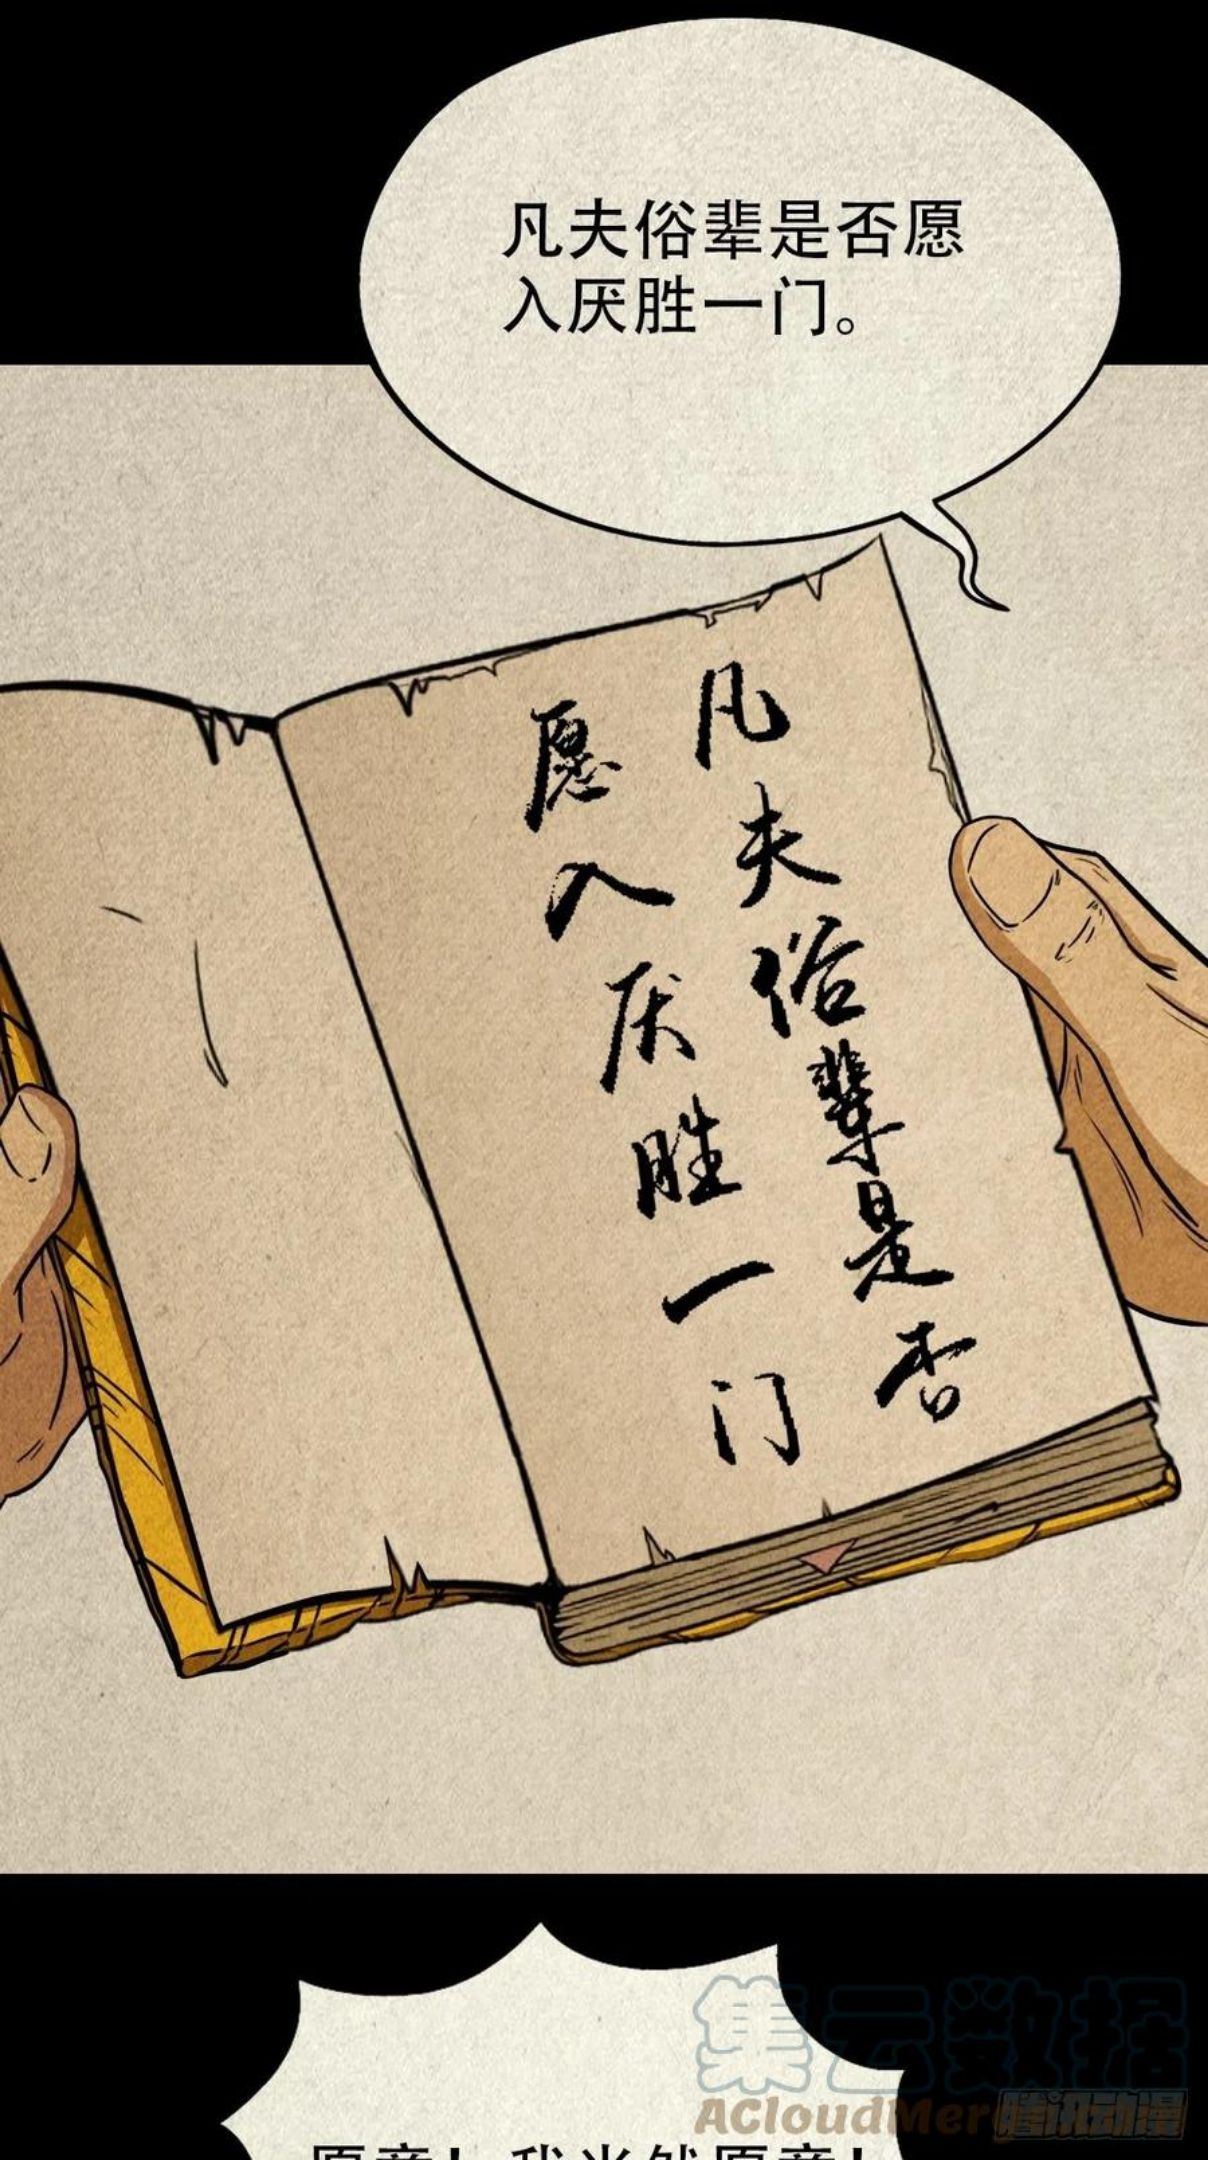 凡夫俗辈是否愿
入厌胜一门。
凡夫俗辈是否
愿入厌胜一门
集云数据
ACloudMerg
腾讯动漫
愿意！我当然愿意！